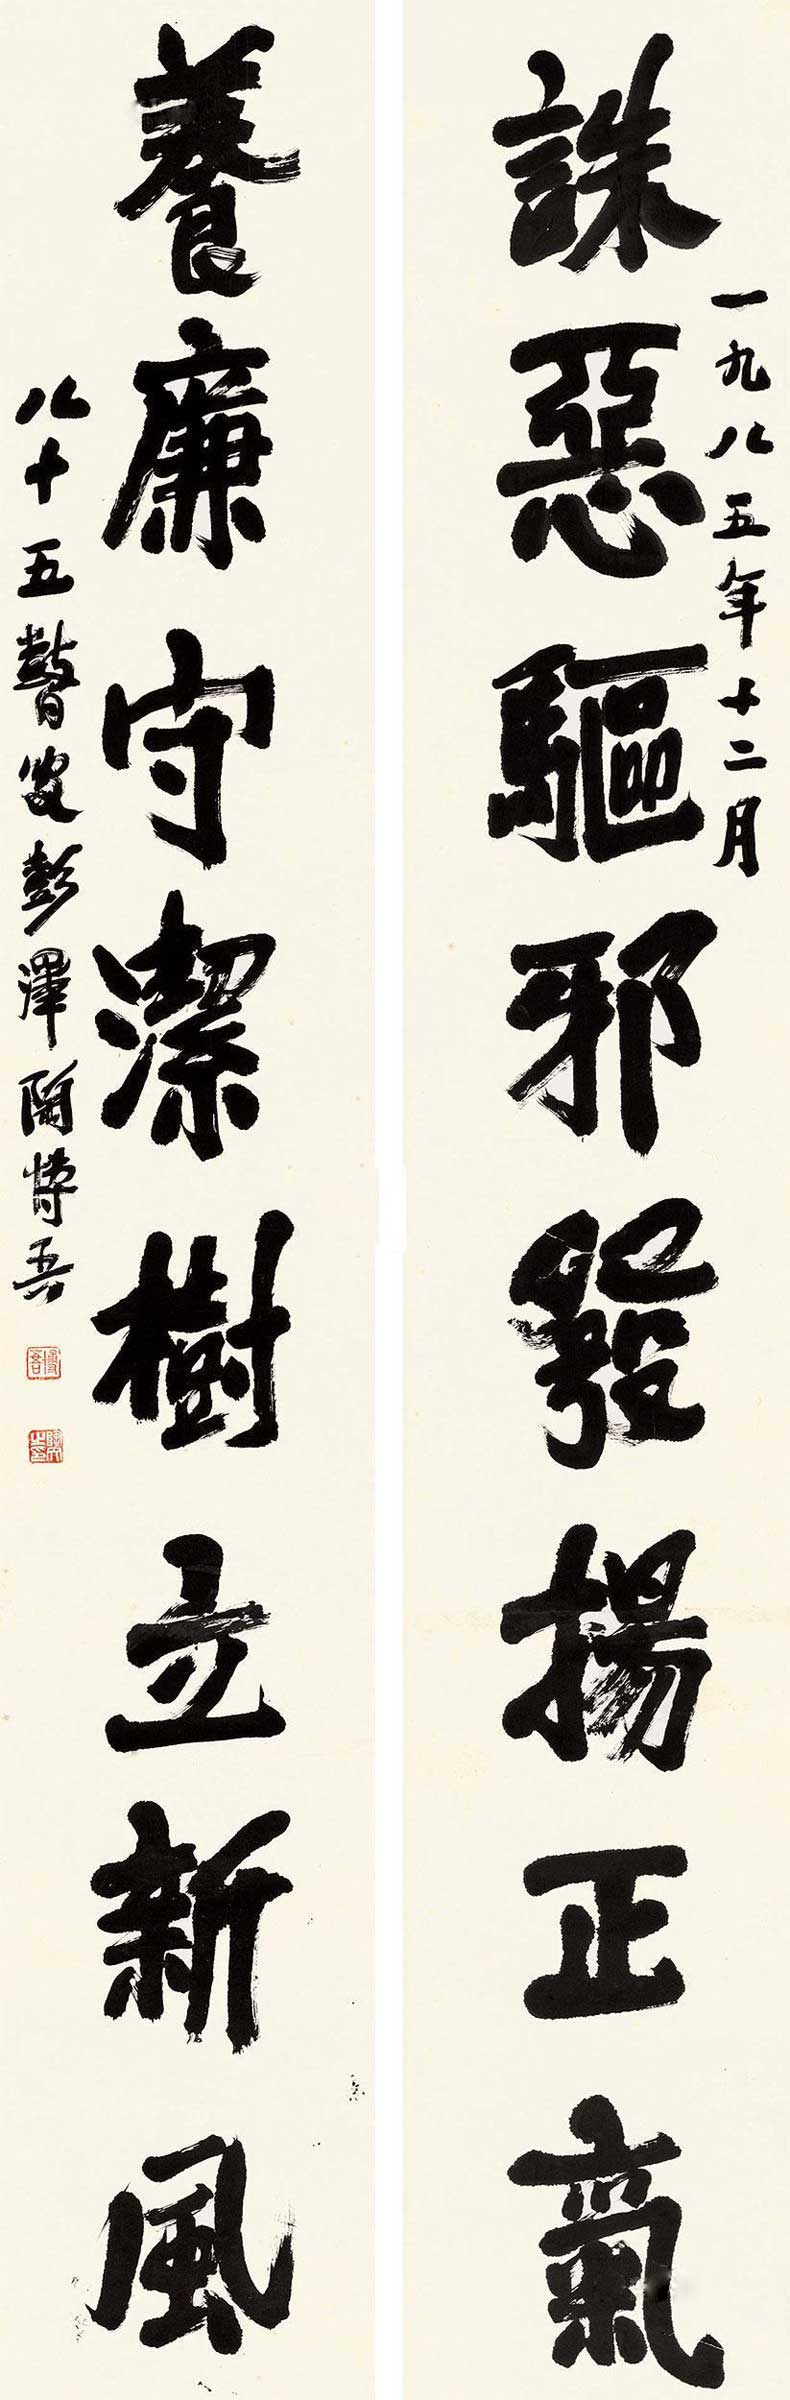 一九八五年十二月
誅惡驅邪發揚正氣
養廉守潔樹立新風
八十五瞽叟彭澤陶博吾
博吾